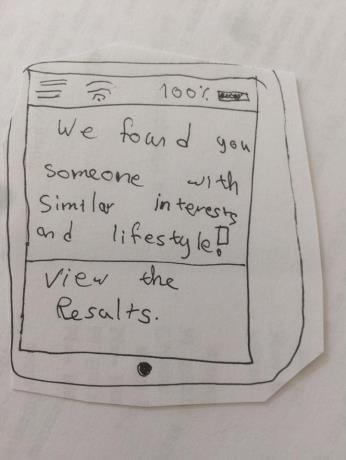 100%
We found you
someone with
Similar interests
and lifestyle!
View the
Results.